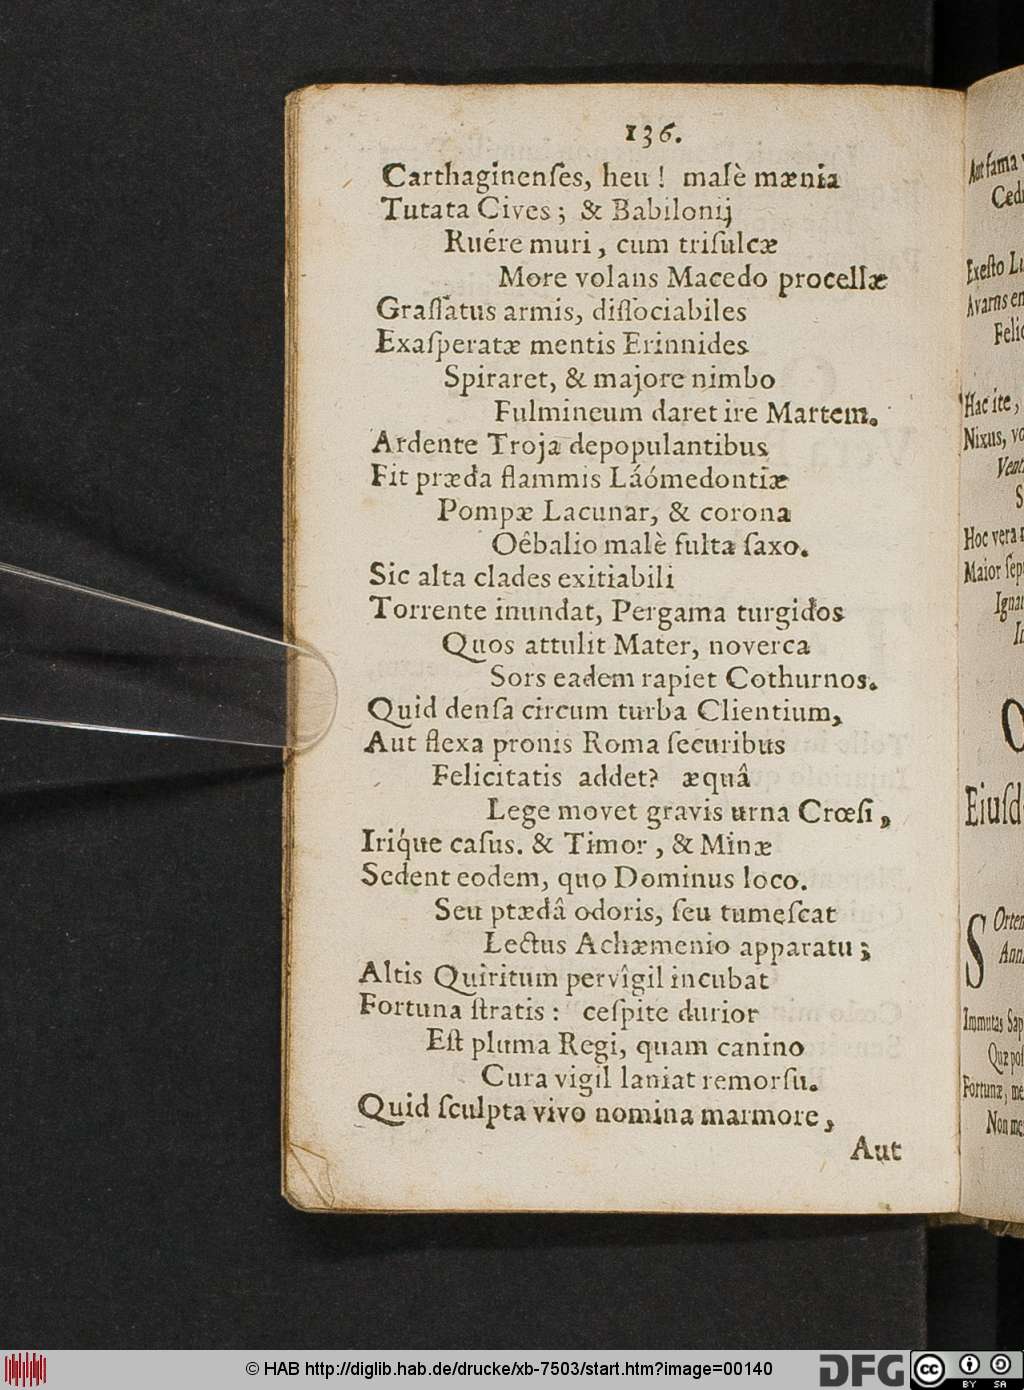 136.
Carthaginenſes, heu! malè mænia
Tutata Cives; & Babilonij
Ruére muri, cum triſulcæ
More volans Macedo procellæ
Graſſatus armis, diſſociabiles
Exaſperatæ mentis Erinnides
Spiraret, & majore nimbo
Fulmineum daret ire Martem.
Ardente Troja depopulantibus
Fit præda flammis Láómedontiæ
Pompæ Lacunar, & corona
Oêbalio malè fulta ſaxo.
Sic alta clades exitiabili
Torrente inundat, Pergama turgidos
Quos attulit Mater, noverca
Sors eadem rapiet Cothurnos.
Quid denſa circum turba Clientium,
Aut flexa pronis Roma ſecuribus
Felicitatis addet? æquâ
Lege movet gravis urna Crœſi,
Irique caſus. & Timor, & Minæ
Sedent eodem, quo Dominus loco.
Seu ptædâ odoris, ſeu tumeſcat
Lectus Achæmenio apparatu;
Altis Quiritum pervîgil incubat
Fortuna ſtratis: ceſpite durior
Eſt pluma Regi, quam canino
Cura vigil laniat remorſu.
Quid ſculpta vivo nomina marmore,
Aut
Aut fama
Exeſto
Avarns
Hac ite,
Nixus,
Hoc vera
Maior
Immutas
Fortunæ,
© HAB http://diglib.hab.de/drucke/xb-7503/start.htm?image=00140
DFG
cc BY SA